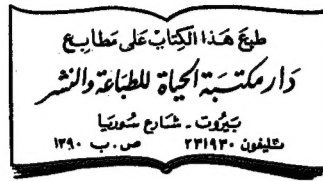 طبع هَذا الكِتابُ عَلى مَطابِع
دَار مكتبَة الحيَاة للطبَاعَة وَالنشر
بَيروت - شارع سُوريَا
تليفون ٢٣١٩٣٠ ص. ب ١٣٩٠